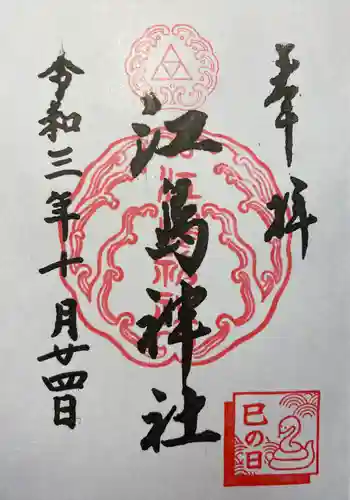 奉拝
江島神社
令和三年十月廿四日
巳の日